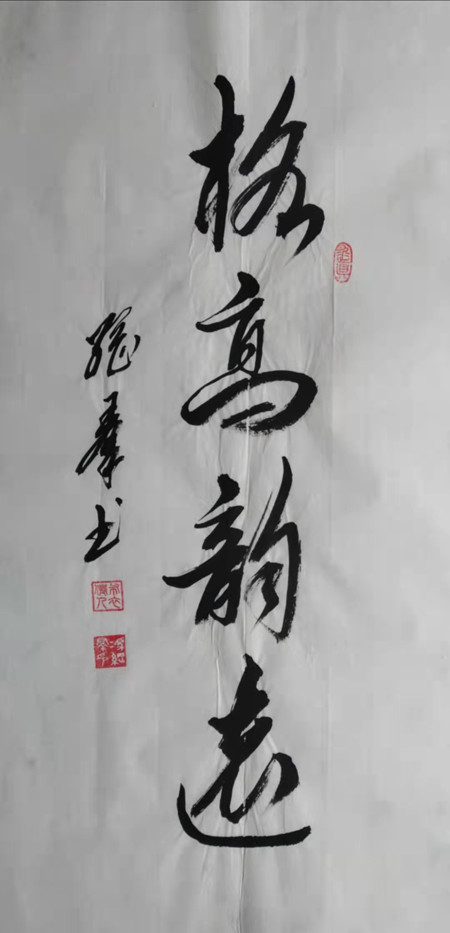 格高韵远
群书